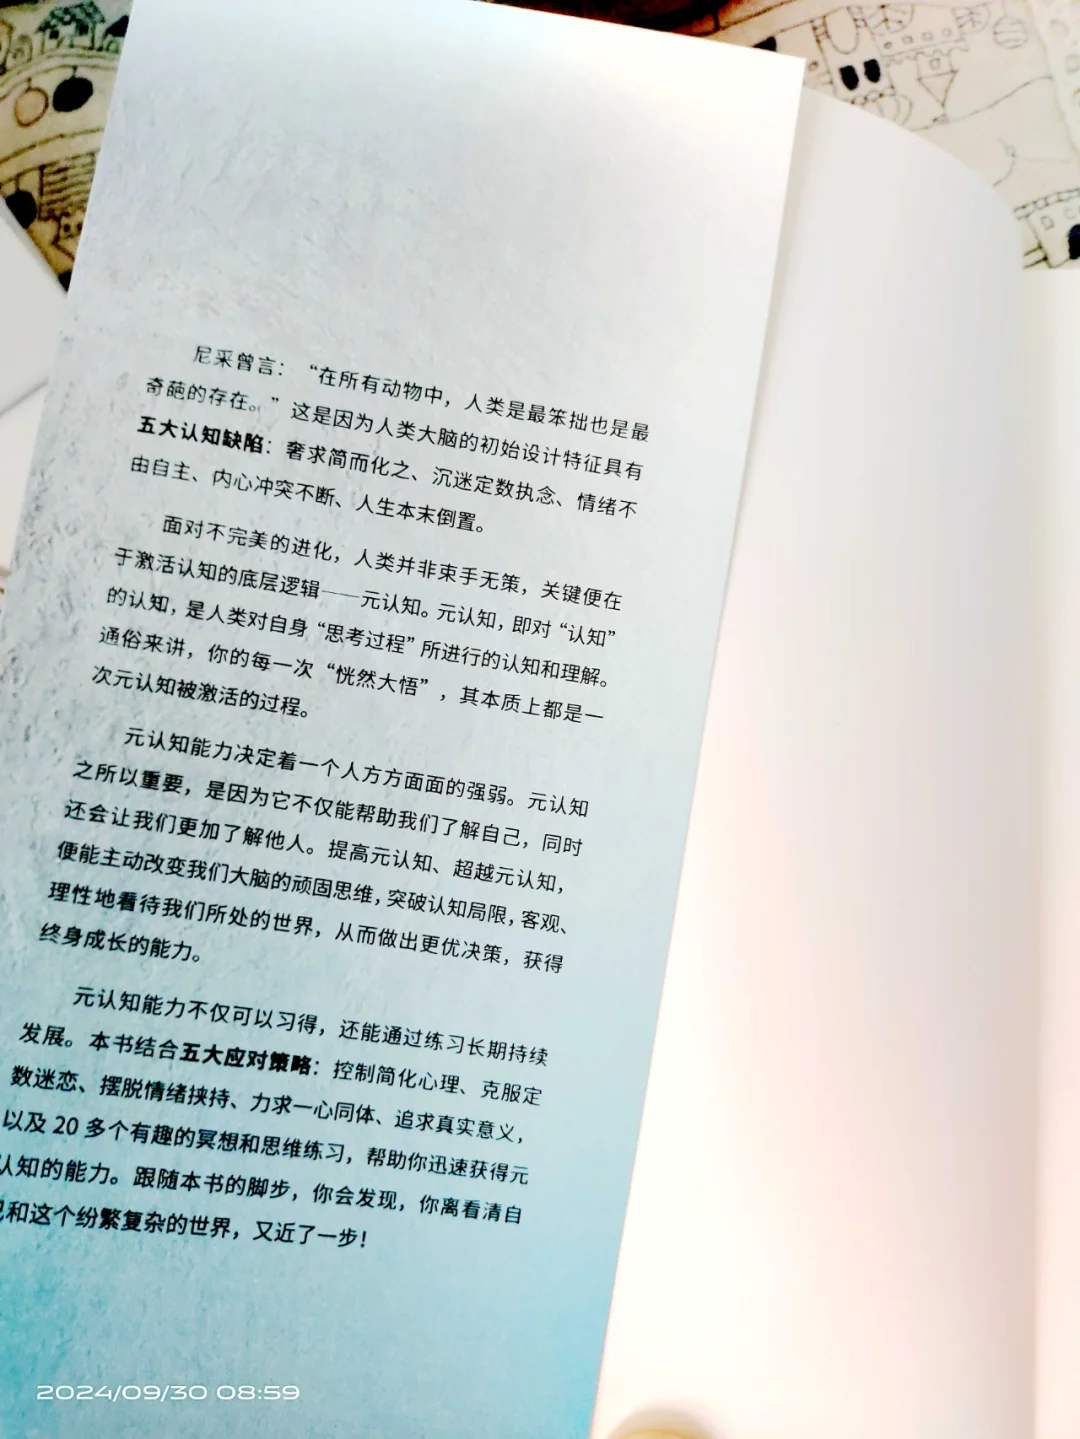 尼采曾言：“在所有动物中，人类是最笨拙也是最
奇葩的存在。”这是因为人类大脑的初始设计特征具有
五大认知缺陷：奢求简而化之、沉迷定数执念、情绪不
由自主、内心冲突不断、人生本末倒置。
面对不完美的进化，人类并非束手无策，关键便在
于激活认知的底层逻辑——元认知。元认知，即对“认知”
的认知，是人类对自身“思考过程”所进行的认知和理解。
通俗来讲，你的每一次“恍然大悟”，其本质上都是一
次元认知被激活的过程。
元认知能力决定着一个人方方面面的强弱。元认知
之所以重要，是因为它不仅能帮助我们了解自己，同时
还会让我们更加了解他人。提高元认知、超越元认知，
便能主动改变我们大脑的顽固思维，突破认知局限，客观、
理性地看待我们所处的世界，从而做出更优决策，获得
终身成长的能力。
元认知能力不仅可以习得，还能通过练习长期持续
发展。本书结合五大应对策略：控制简化心理、克服定
数迷恋、摆脱情绪挟持、力求一心同体、追求真实意义，
以及 20 多个有趣的冥想和思维练习，帮助你迅速获得元
认知的能力。跟随本书的脚步，你会发现，你离看清自
己和这个纷繁复杂的世界，又近了一步！
2024/09/30 08:59